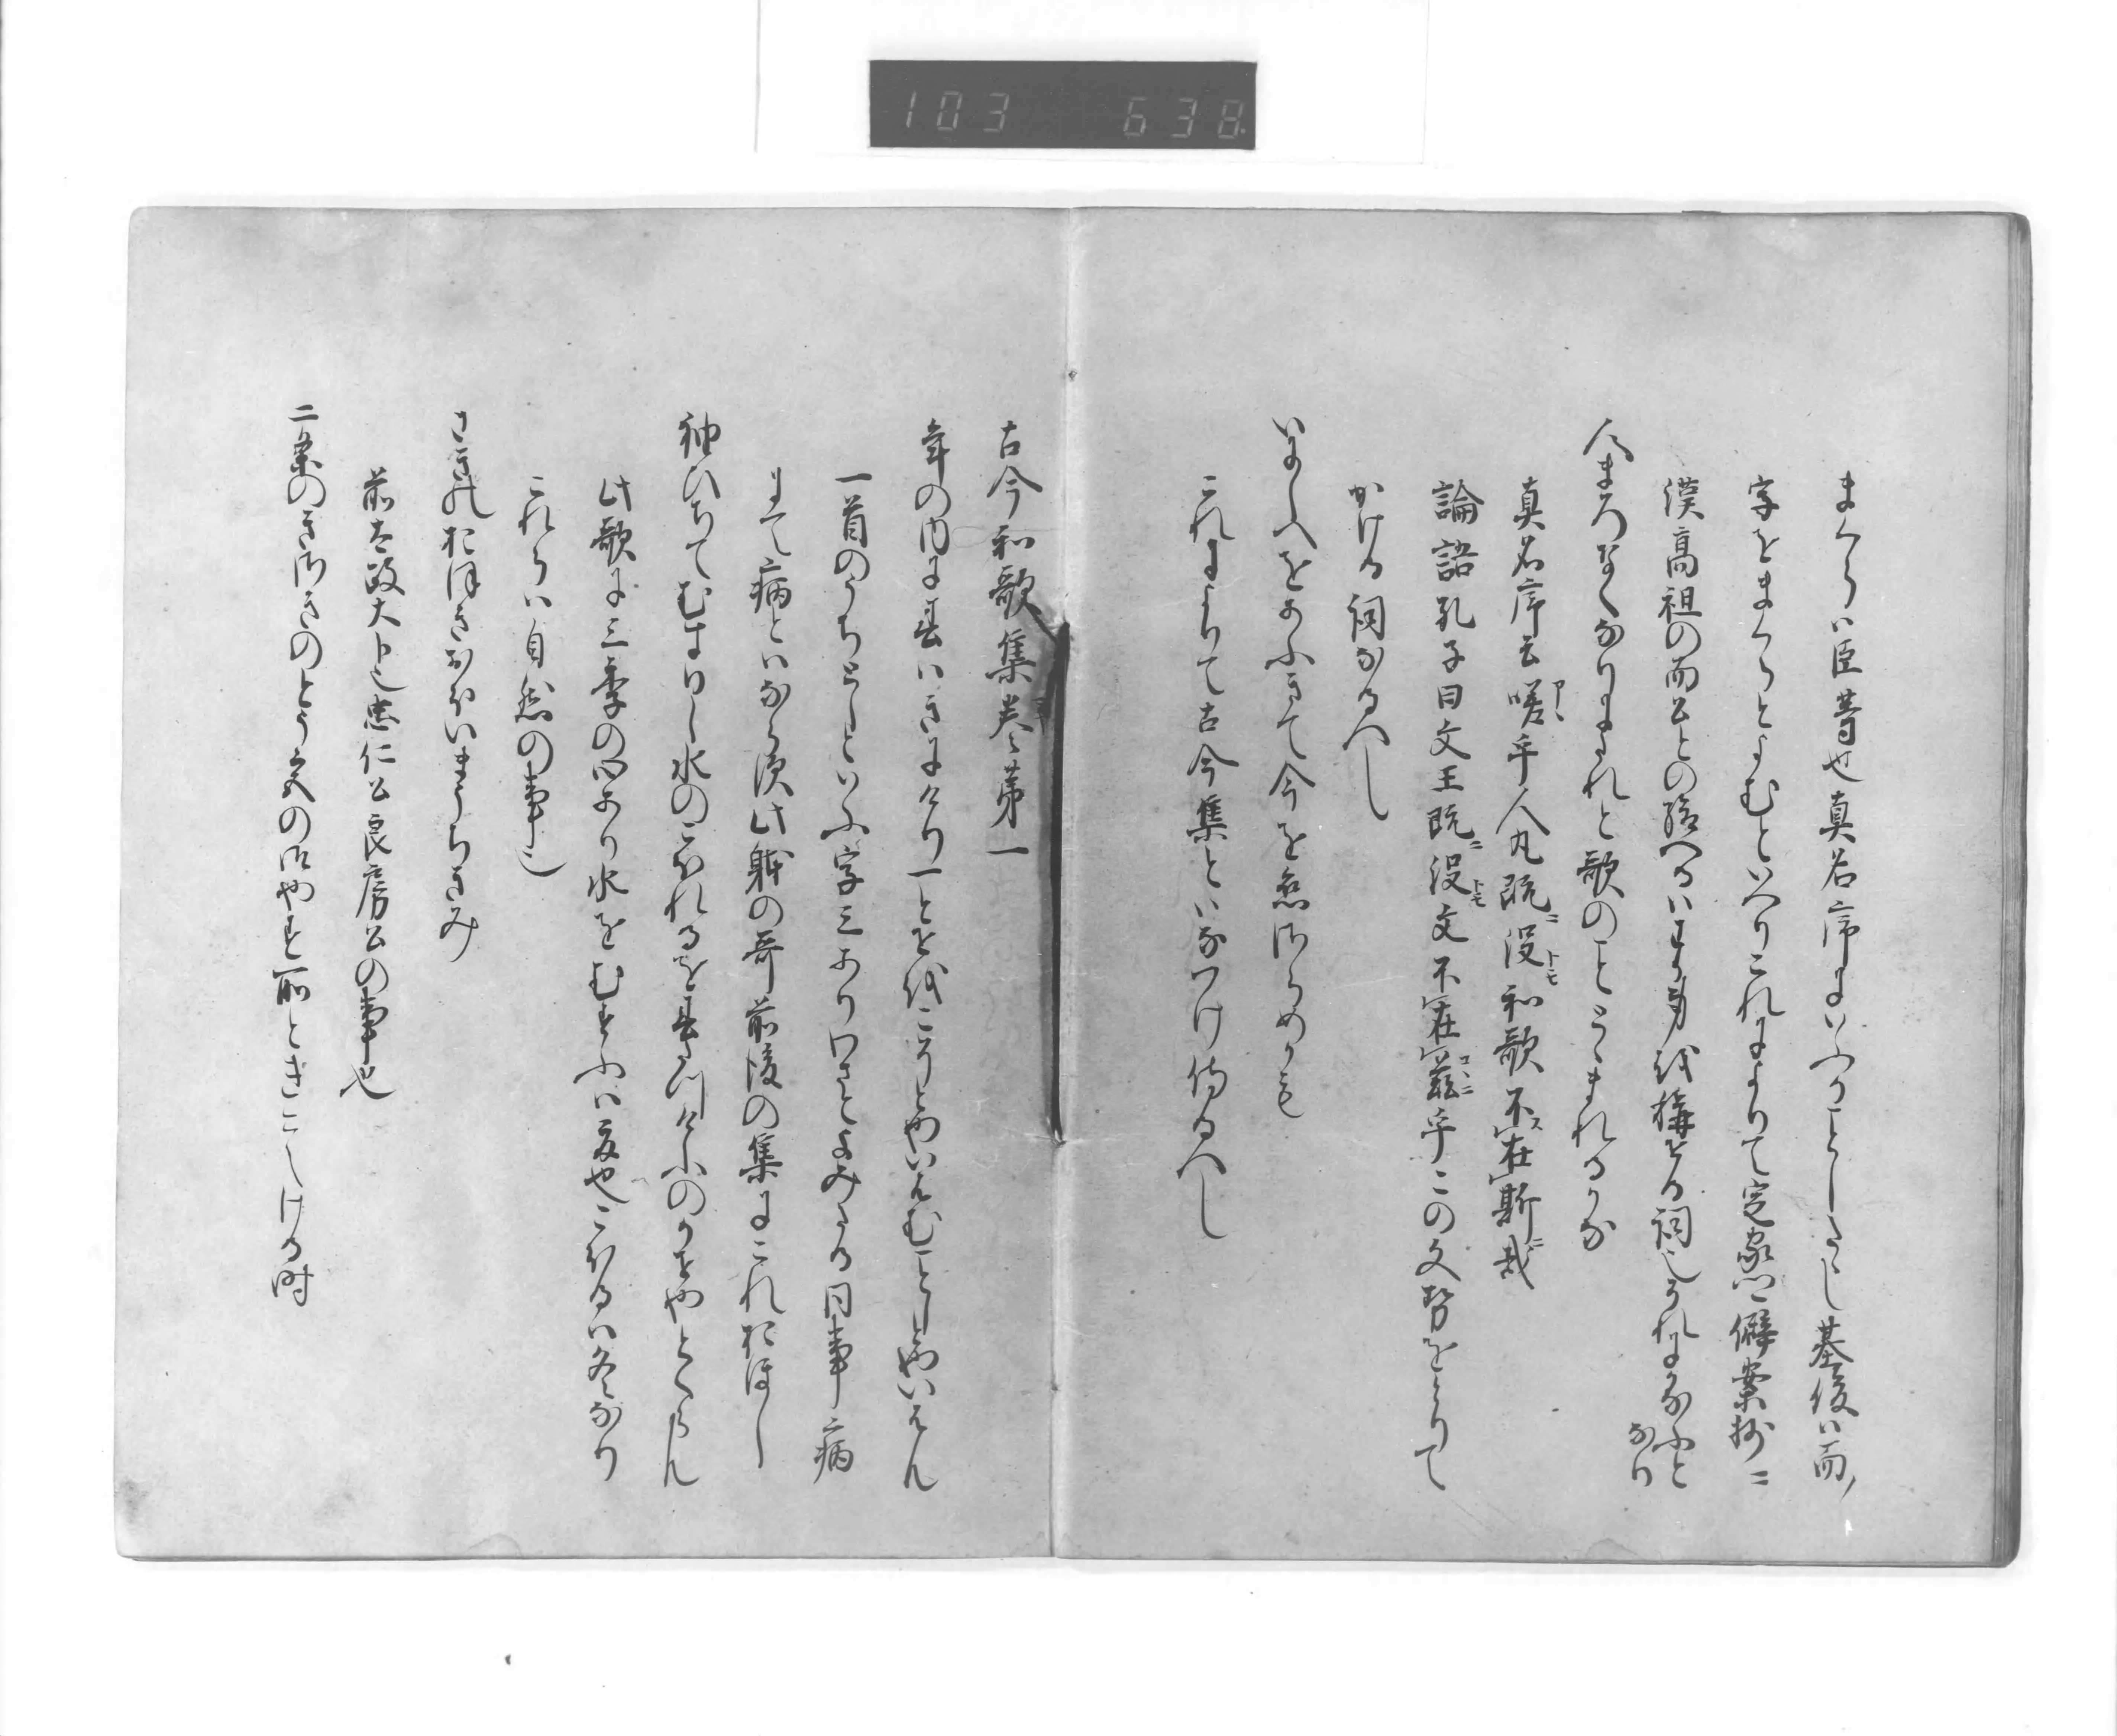 103 638
まくらハ臣等也真名序にいふかことしたゝし基俊ハ而ノ
字をまくらとよむといへりこれによりて定家ハ僻案抄ニ
漢高祖の而公との給へるハわか身越称せる詞也それになそふと
なり
人まろなくなりにたれと歌のことゝまれるかな
真名序云嗟乎人丸既ニ没トモ和歌不在斯ニ哉
論語孔子曰文王既ニ没トモ文不在茲コヽニ乎この文勢をとりて
かける詞なるへし
いにしへをあふきて今を恋さらめかも
これによりて古今集とハなつけ侍るへし
古今和歌集巻第一
年の内に春ハきにけり一とせ越こそとやいはむことしとやいはん
一首のうちとしといふ字三ありわさとよみたる同事病
にて病といなから須此躰の哥前後の集にこれおほし
袖ひちてむすひし水のこほれるを春たつけふのかせやとくらん
此歌に三季の心あり水をむすふハ夏也こほるハ冬なり
これらハ自然の事也
さきのおほきおほいまうちきみ
前太政大臣忠仁公良房公の事也
二条のきさきのとう宮の御やす所ときこしける時